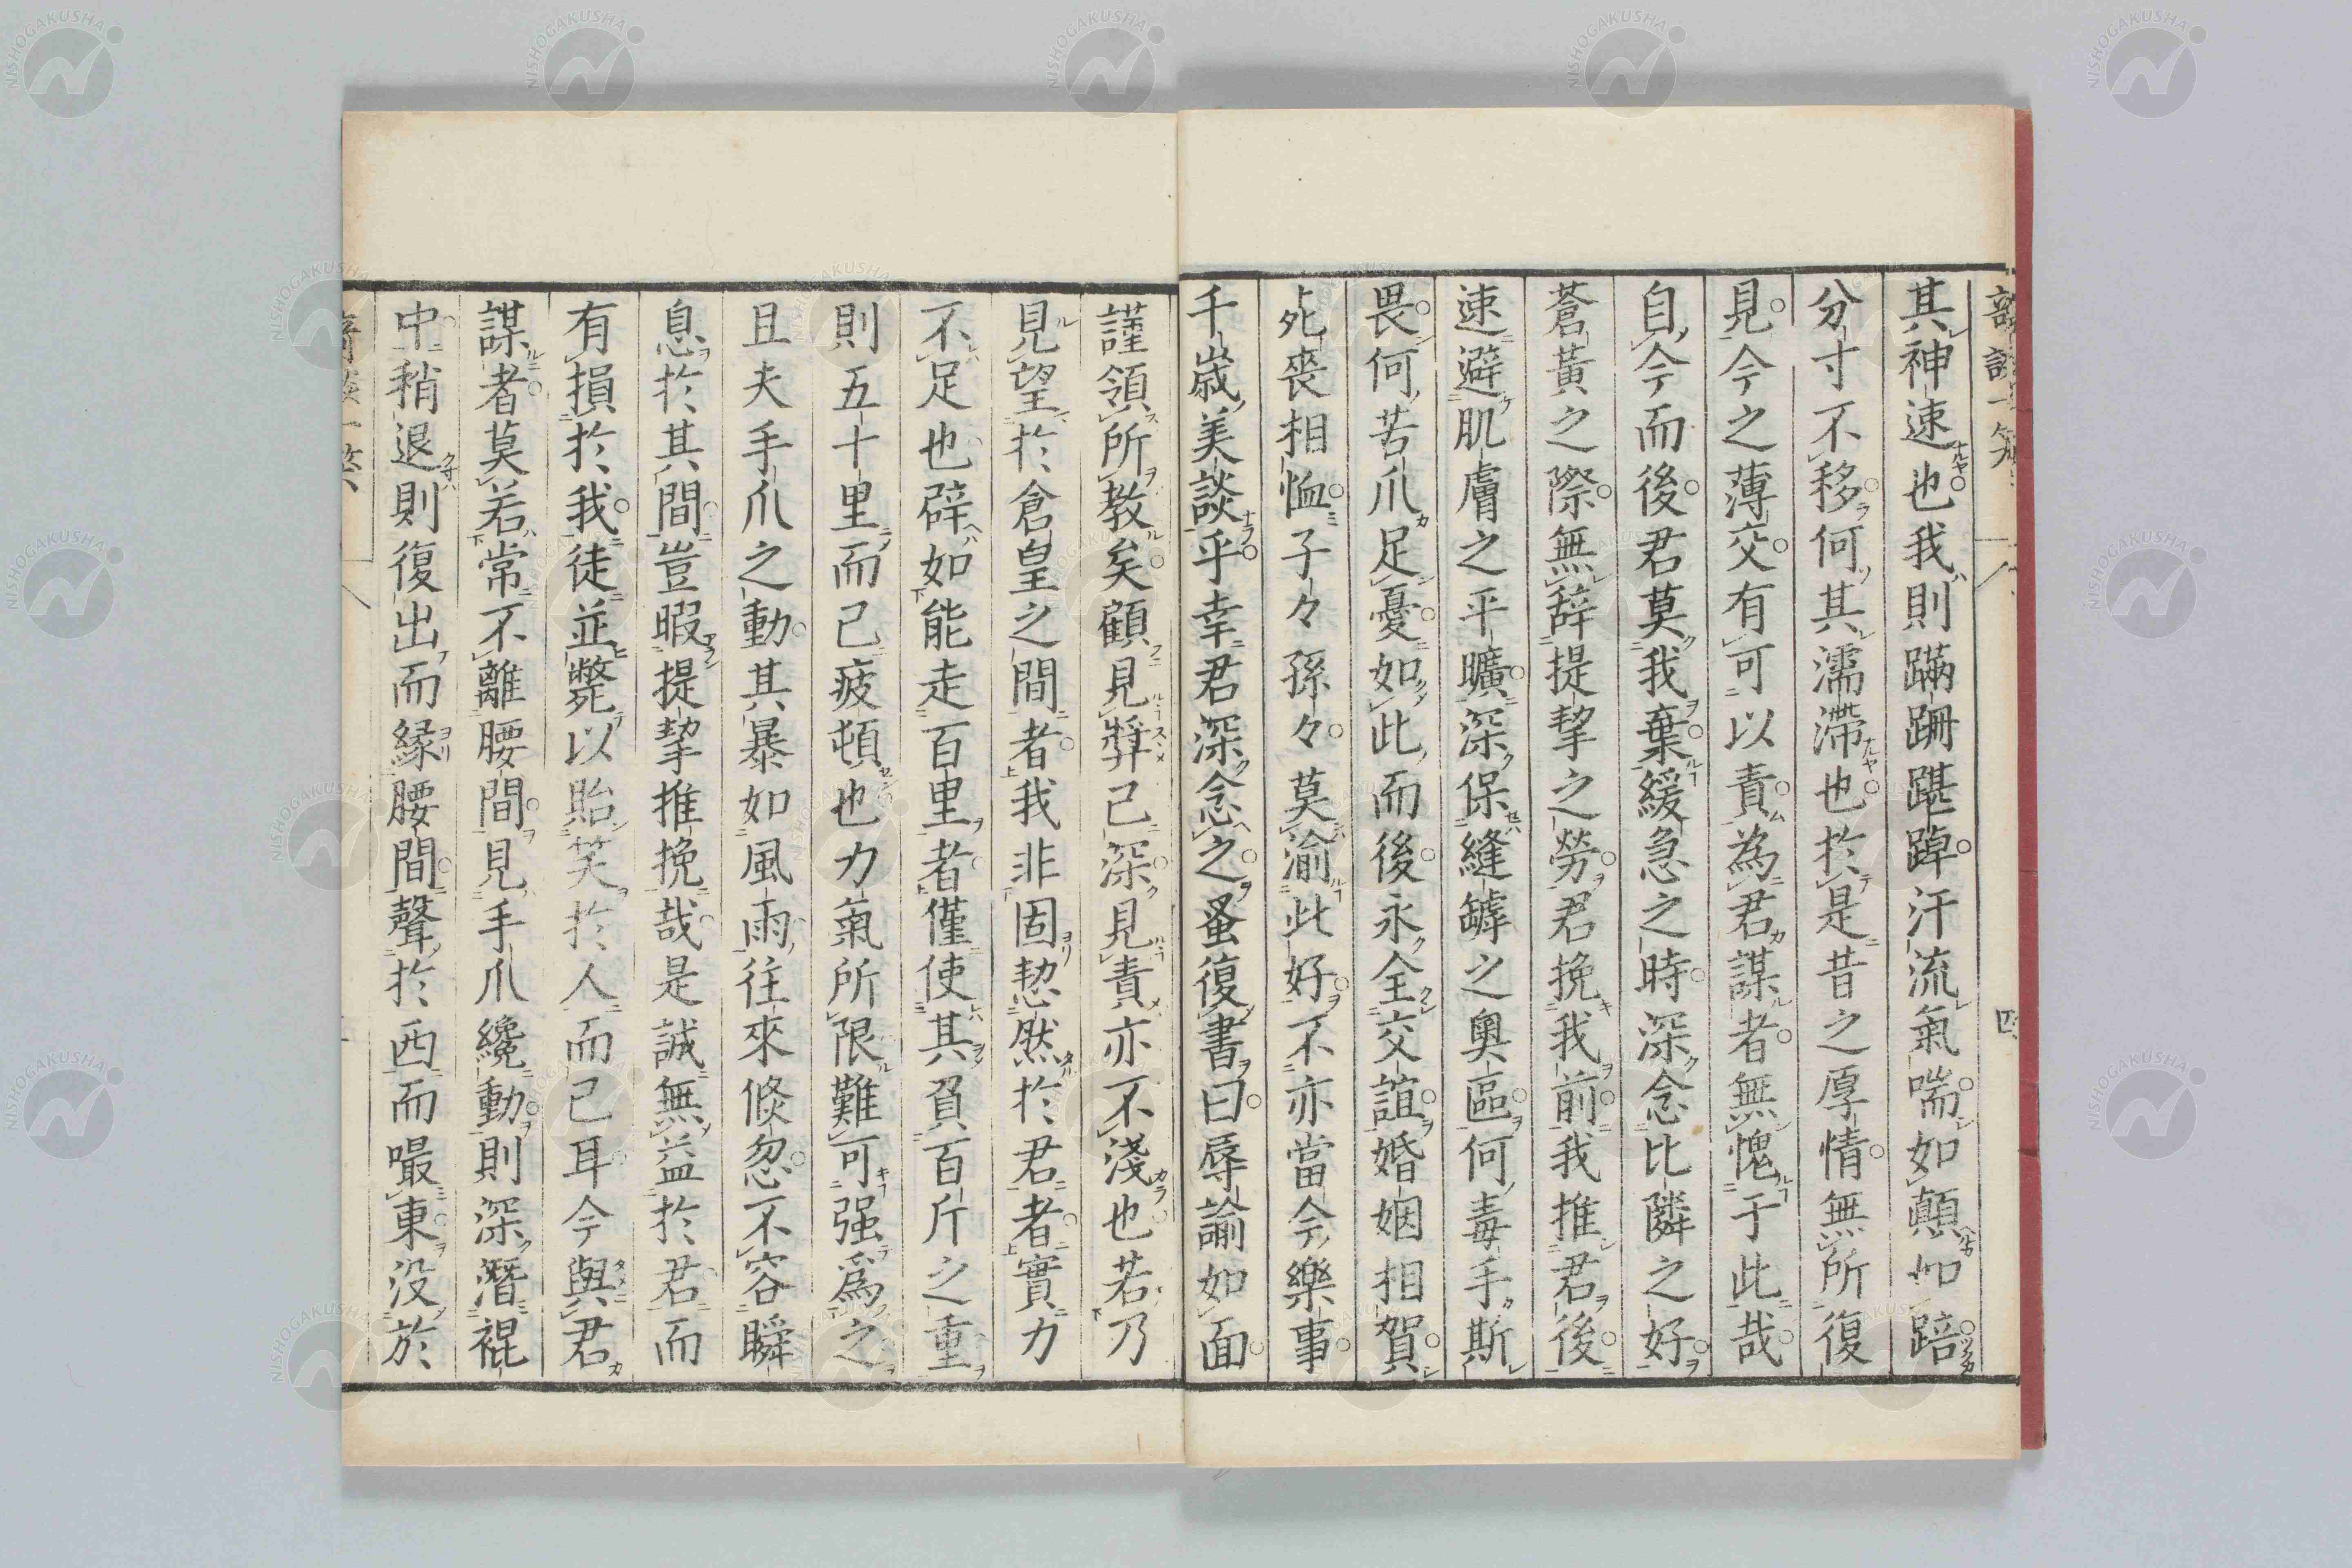 其神速也我則蹣跚踸踔汗流氣喘如顛如踣
分寸不移何其濡滯也於是昔之厚情無所復
見今之薄交有可以責為君謀者無愧于此哉
自今而後君莫我棄緩急之時深念比隣之好
蒼黃之際無辭提挈之勞君挽我前我推君後
速避肌膚之平曠深保縫罅之奧區何毒手斯
畏何苦爪足憂如此而後永全交誼婚姻相賀
死喪相恤子々孫々莫渝此好不亦當今樂事
千歳美談乎幸君深念之蚤復書曰辱諭如面
謹領所教矣顧見弉己深見責亦不淺也若乃
見望於倉皇之間者我非固恝然於君者實力
不足也辟如能走百里者僅使其負百斤之重
則五十里而已疲頓也力氣所限難可强爲之
且夫手爪之動其暴如風雨往來倐忽不容瞬
息於其間豈暇提挈推挽哉是誠無益於君而
有損於我徒並斃以貽笑於人而已耳今與君
謀者莫若常不離腰間見手爪纔動則深潛裩
中稍退則復出而緣腰間聲於西而嘬東没於
NISHOGAKUSHA